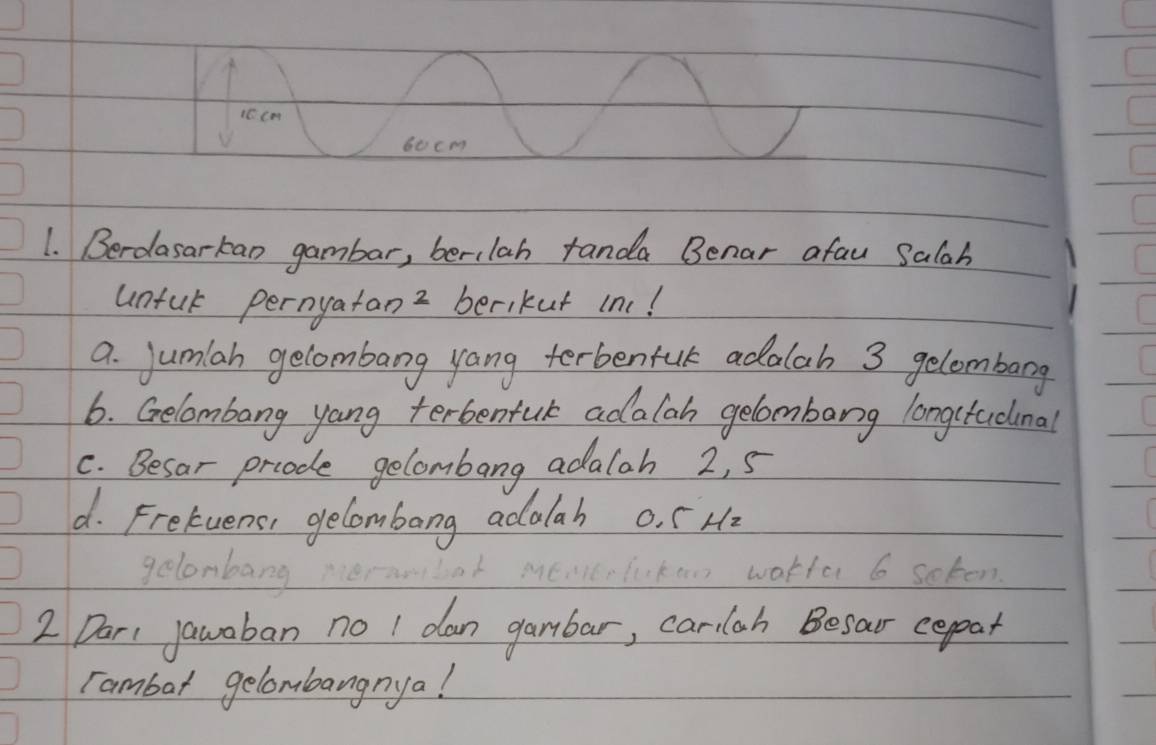 10 cm
60 cm
1. Berdasarkan gambar, berilah tanda Benar atau Salah
untuk pernyatan² berikut ini!
a. Jumlah gelombang yang terbentuk adalah 3 gelombang
b. Gelombang yang terbentuk adalah gelombang longitudinal
c. Besar priode gelombang adalah 2,5
d. Frekuensi gelombang adalah 0,5 Hz
gelombang merambat memerlukan waktu 6 sekon.
2 Dari jawaban no 1 dan gambar, carilah Besar cepat
rambat gelombangnya!